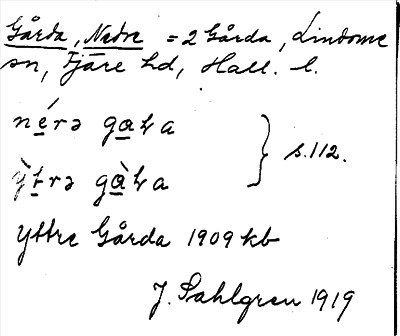 Gårda, Nedre = 2 Gårda, Lindome
sn, Fjäre hd, Hall. l.
né̱rə ga̱ꝉa
s. 112.
ỳṯrə gà̱ꝉa
Yttre Gårda 1909 kb
J. Sahlgren 1919